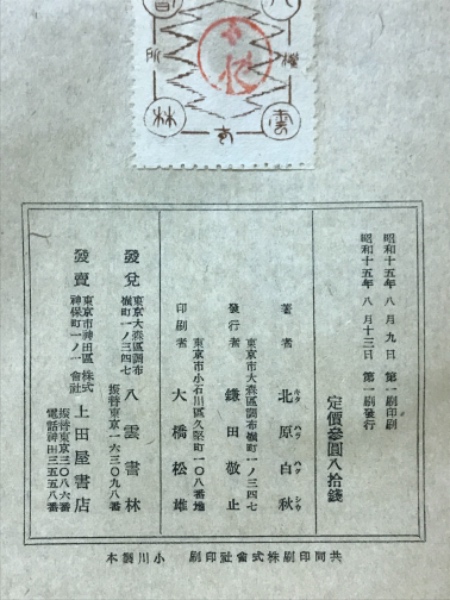 八雲書林
所
權
昭和十五年 八月九日 第一刷印刷
昭和十五年 八月十三日 第一刷發行
定價參圓八拾錢
著者 北原白秋
キタ ハラ ハク シウ
東京市大森區調布嶺町一ノ三四七
發行者 鎌田敬止
東京市小石川區久堅町一〇八番地
印刷者 大橋松雄
發兌 東京大森區調布嶺町一ノ三四七 八雲書林
振替東京一六三〇九八番
發賣 東京市神田區神保町一ノ一 株式會社 上田屋書店
振替東京三〇八六番
電話神田三五五八番
共同印刷株式會社印刷 小川製本